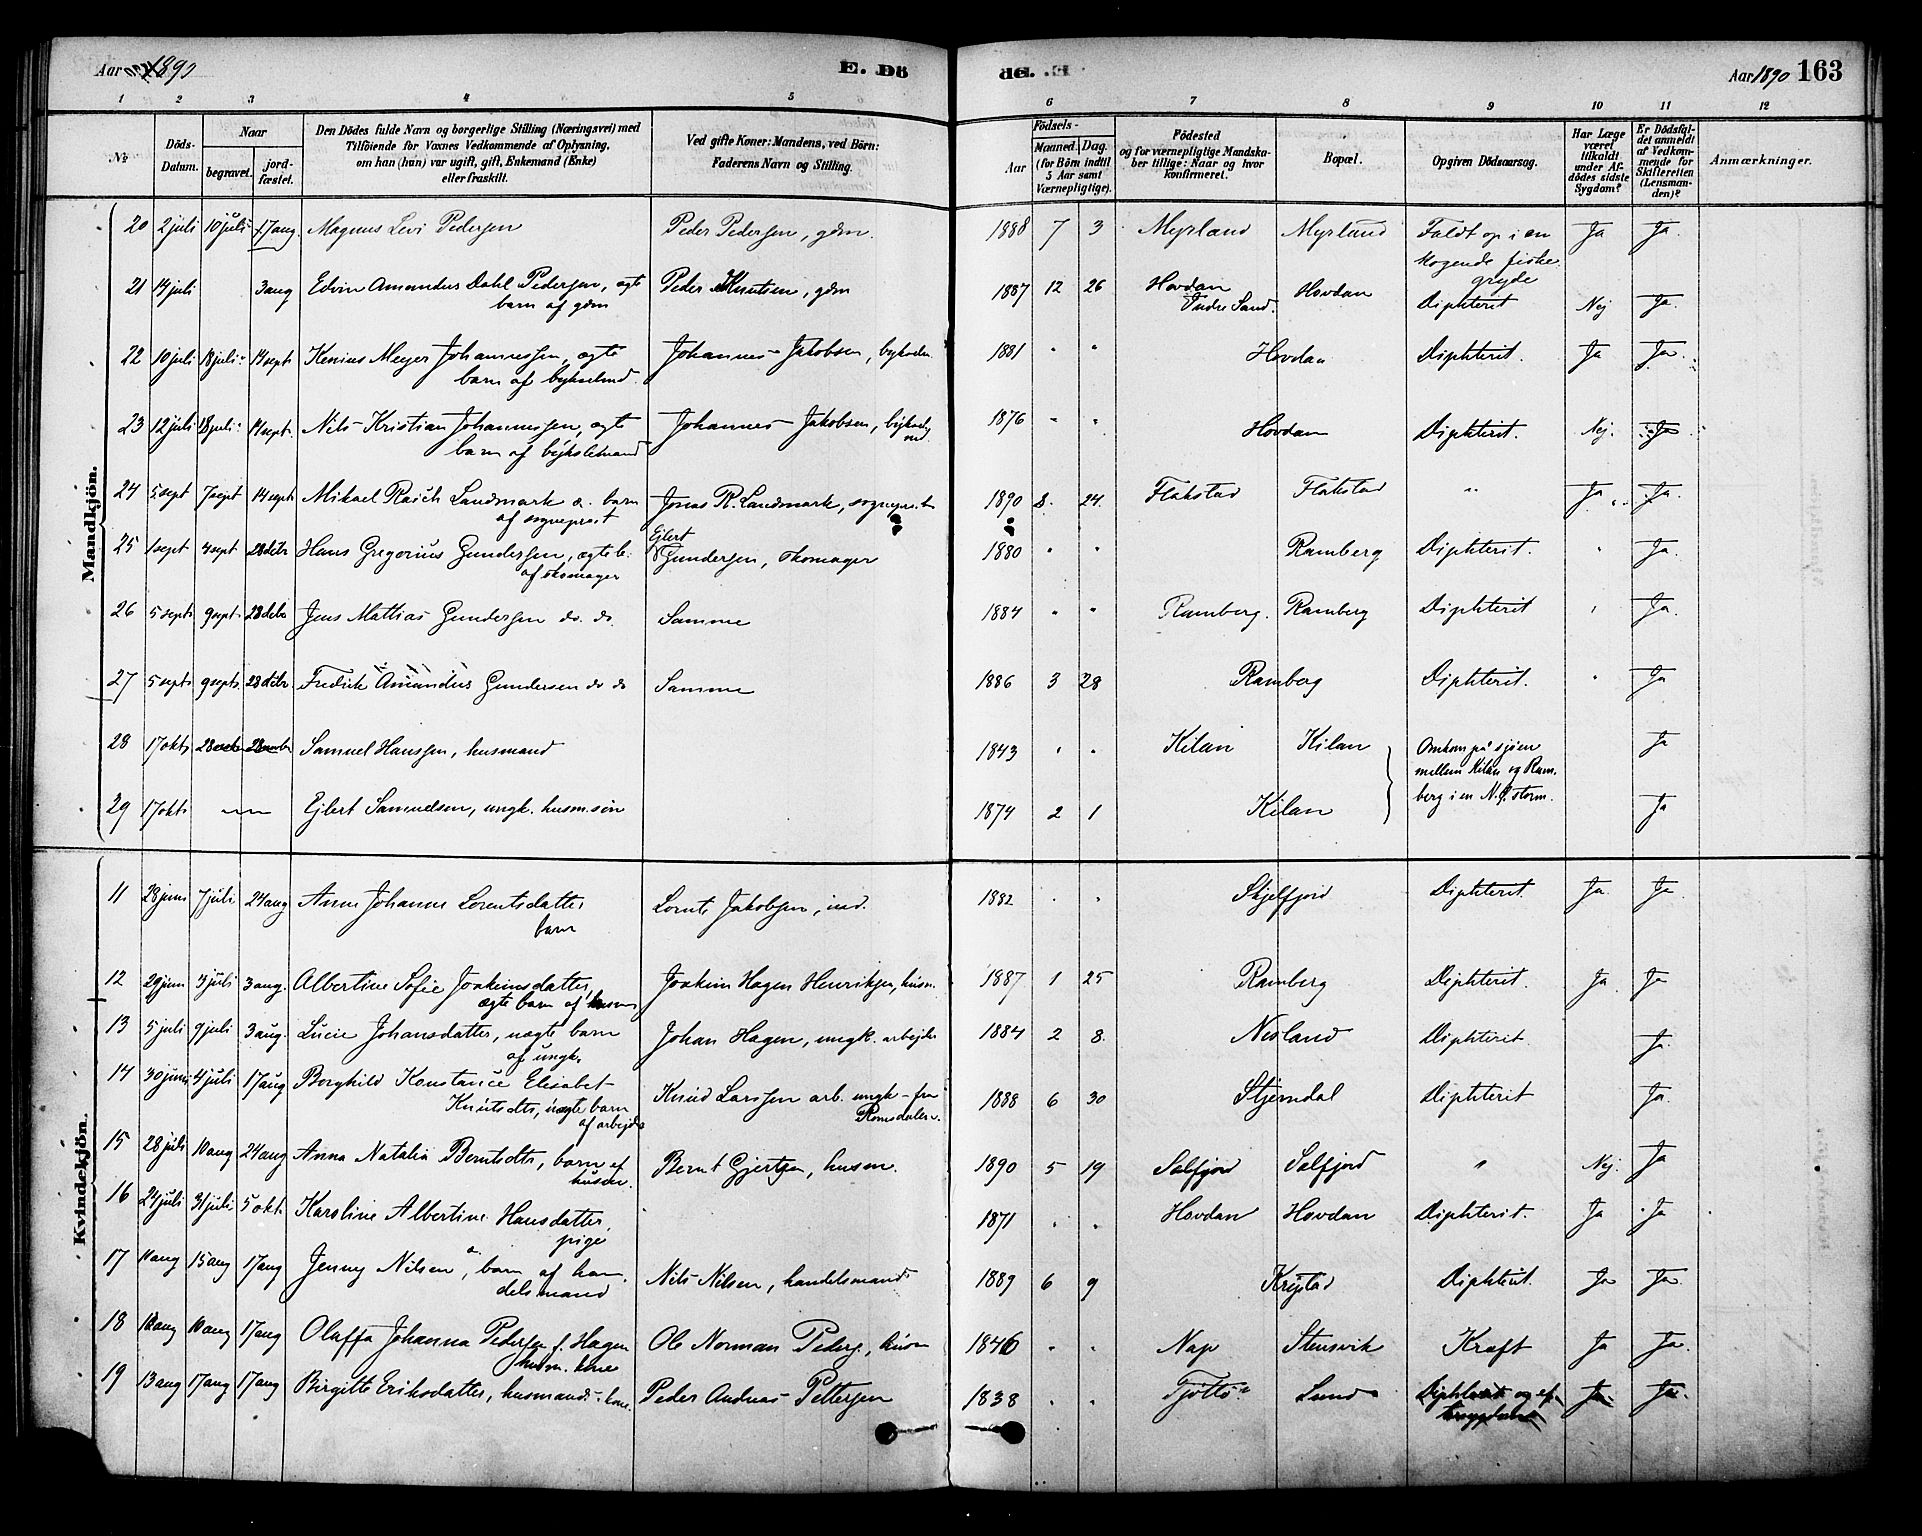 Aar 1890 E. Dö
dG. E. Aar 1890 163
1 2 3 4 5 6 7 8 9 10 11 12
No Döds-Datum. Naar begravet. jord-fæstet.
Den Dödes fulde Navn og borgerlige Stilling (Næringsvei) med
Tilföiende for Voxnes Vedkommende af Oplysning,
om han (hun) var ugift, gift, Enkemand (Enke)
eller fraskilt.
Ved gifte Koner: Mandens, ved Börn:
Faderens Navn og Stilling.
Födsels-
Aar Maaned. Dag.
(for Börn indtil
5 Aar samt
Værnepligtige).
Födested
og for værnepligtige Mandska-
ber tillige: Naar og hvor
konfirmeret.
Bopæl.
Opgiven Dödsaarsag.
Har Læge
været
tilkaldt
under Af-
dödes sidste
Sygdom?
Er Dödsfal-
det anmeldt
af Vedkom-
mende for
Skifteretten
(Lensman-
den)?
Anmærkninger.
Mandkjön.
20 2 juli 10 juli 17 aug. Magnus Levi Pedersen Peder Pedersen, gdm. 1888 7 3 Myrland Myrland Faldt op i en Ja Ja.
kogende fiske
gryde
21 14 juli 3 aug Edvin Amandus Dahl Pedersen, ægte Peder Knutsen, gdm 1887 12 26 Hovdan Hovdan Diphterit Nej Ja.
barn af gdm Indre Sand.
22 10 juli 18 juli 14 sept Kenius Meyer Johannessen, ægte Johannes Jakobsen, 1881 " " Hovdan Diphterit. Ja Ja.
barn af bykselmd.
23 12 juli 18 juli 14 sept. Nils Kristian Johannessen, ægte Johannes Jakobsen, 1876 " " Hovdan Diphterit. Nej. Ja
barn af bykselmand
24 5 sept 7 sept 14 sept Mikael Rasch Landmark æ. barn Jonas R. Landmark, sognepræst 1890 8. 24. Flakstad Flakstad " Ja Ja.
af sognepræst
25 1 sept 4 sept 28 dcbr Hans Gregorius Gundersen, ægte b. Ejlert Gundersen, skomager 1880 " " Ramberg Diphterit. " Ja.
af skomager
26 5 sept 9 sept 28 dcbr Jens Mattias Gundersen do. do. Samme 1884 " " Ramberg. Ramberg Diphterit " Ja.
27 5 sept 9 sept. 28 dcbr Fredrik Amandus Gundersen do do Samme 1886 3 28 Ramberg Diphterit. " Ja
28 17 okt. Samuel Hanssen, husmand 1843 " " Kilan Kilan Omkom på sjøen Ja
mellem Kilan og Ram-
berg i en N.Ø. storm.
29 17 okt. Ejlert Samuelsen, ungk. husm.søn 1874 2 1 Kilan Ja
Kvindekjön.
11 28 juni 7 juli 24 aug Anne Johanne Lorentsdatter Lornts Jakobsen, ind. 1882 " " Skjelfjord Diphterit. Ja. Ja
barn
12 29 juni 3 juli 3 aug. Albertine Sofie Joakimsdatter, Joakim Hagen Henriksen, husm. 1887 1 25 Ramberg Diphterit. Ja. Ja
ægte barn af husm
13 5 juli 9 juli 3 aug. Lucie Johansdatter, uægte barn Johan Hagen, ungk. arbejder 1884 2 8. Nesland Diphterit. Ja.
af ungk.
14 30 juni 4 juli 17 aug Borghild Konstance Elisabet Knud Larssen arb. ungk - fra 1888 6 30 Stjerndal Diphterit Ja.
Knutsdtr, uægte barn Romsdalen.
af arbejder
15 28 juli 10 aug 24 aug Anna Natalia Berntsdtr, barn af Bernt Gjertsen, husm. 1890 5 19 Solfjord Solfjord " Nej. Ja
husm.
16 24 juli 31 juli 5 okt. Karoline Albertine Hansdatter, 1871 " " Hovdan Hovdan Diphterit. Ja Ja
pige
17 11 aug 15 aug 17 aug Jenny Nilsen, æ. barn af han- Nils Nilsen, handelsmand 1889 6 9 Krystad Diphterit. Ja Ja.
delsmand
18 10 aug 17 aug Olaffa Johanna Pedersen f. Hagen Ole Norman Peders., husm 1846 " " Nap Stensvik Kræft Ja Ja.
husm. kone
19 13 aug 17 aug 17 aug Birgitte Eriksdatter, husmands-kone. Peder Andreas Pettersen 1838 " " Tjøttø Sund Diphterit og Ja Ja.